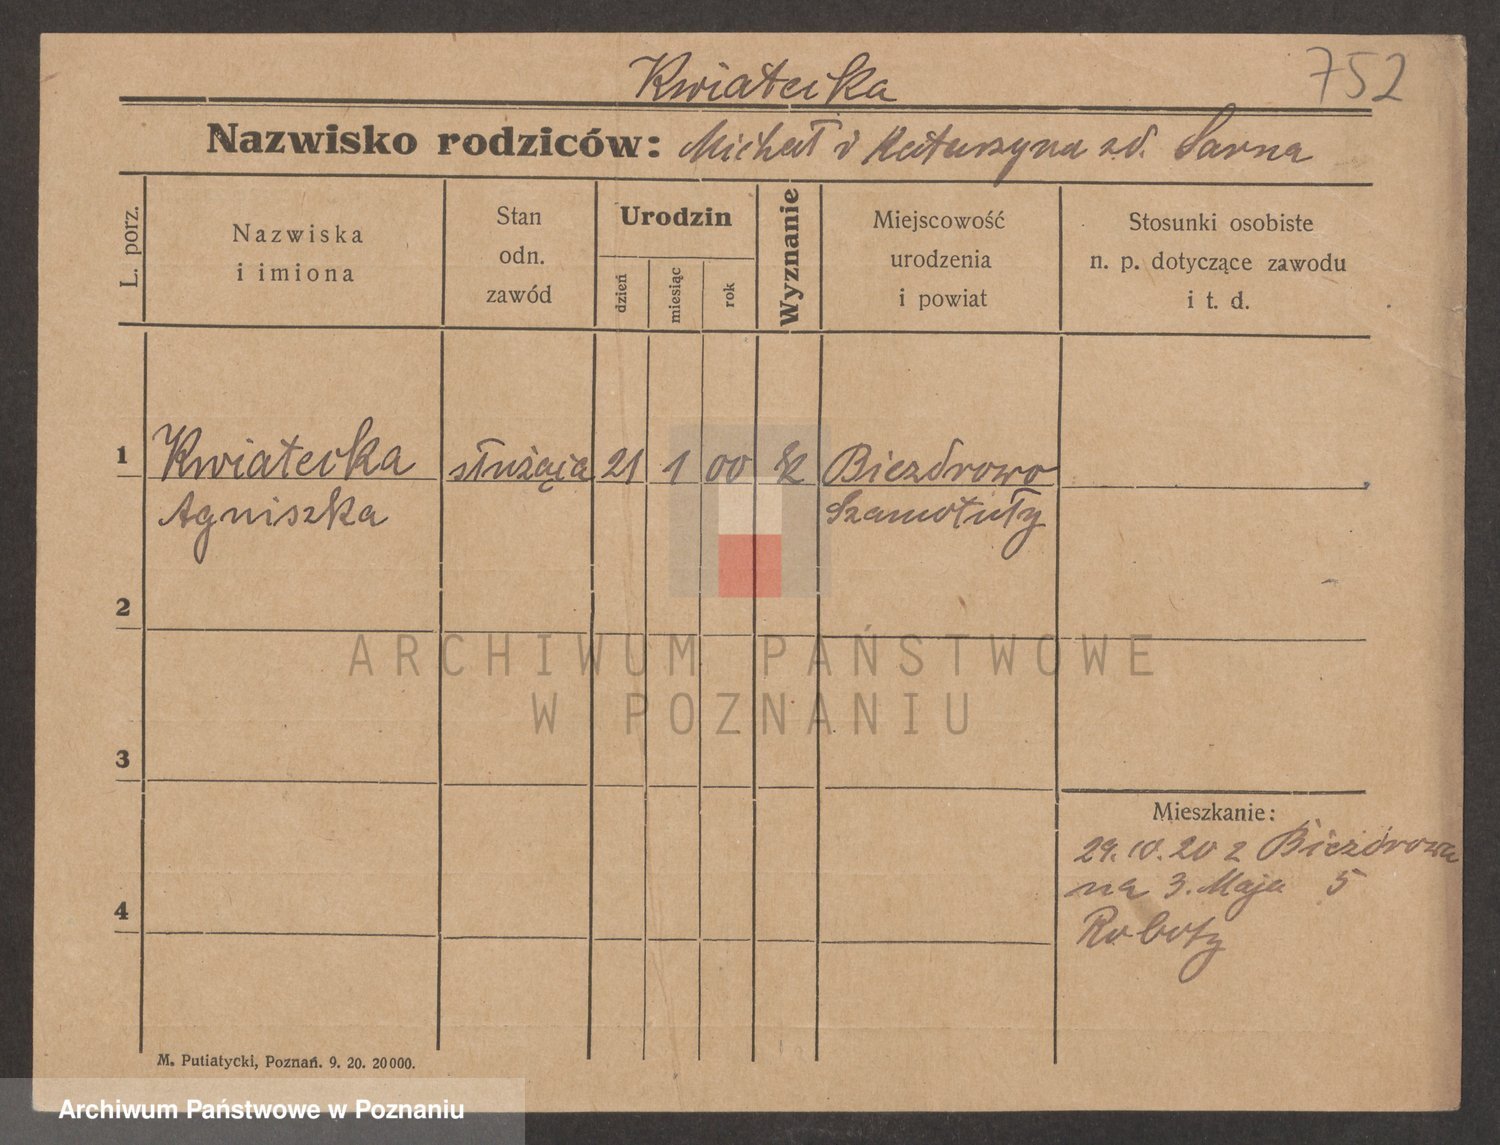 Kwiatecka
752
Nazwisko rodziców: Michał i Katarzyna zd. Sarna
L. porz.
Nazwiska
i imiona
Stan
odn.
zawód
Urodzin
dzień
miesiąc
rok
Wyznanie
Miejscowość
urodzenia
i powiat
Stosunki osobiste
n. p. dotyczące zawodu
i t. d.
1 Kwiatecka służąca 21 1 00 Biezdrowo
Agniszka Szamotuły
2
ARCHIWUM PAŃSTWOWE
W POZNANIU
3
Mieszkanie:
29. 10. 20 z Biezdrowa
na 3. Maja 5
4
Roboty
M. Putiatycki, Poznań. 9. 20. 20000.
Archiwum Państwowe w Poznaniu